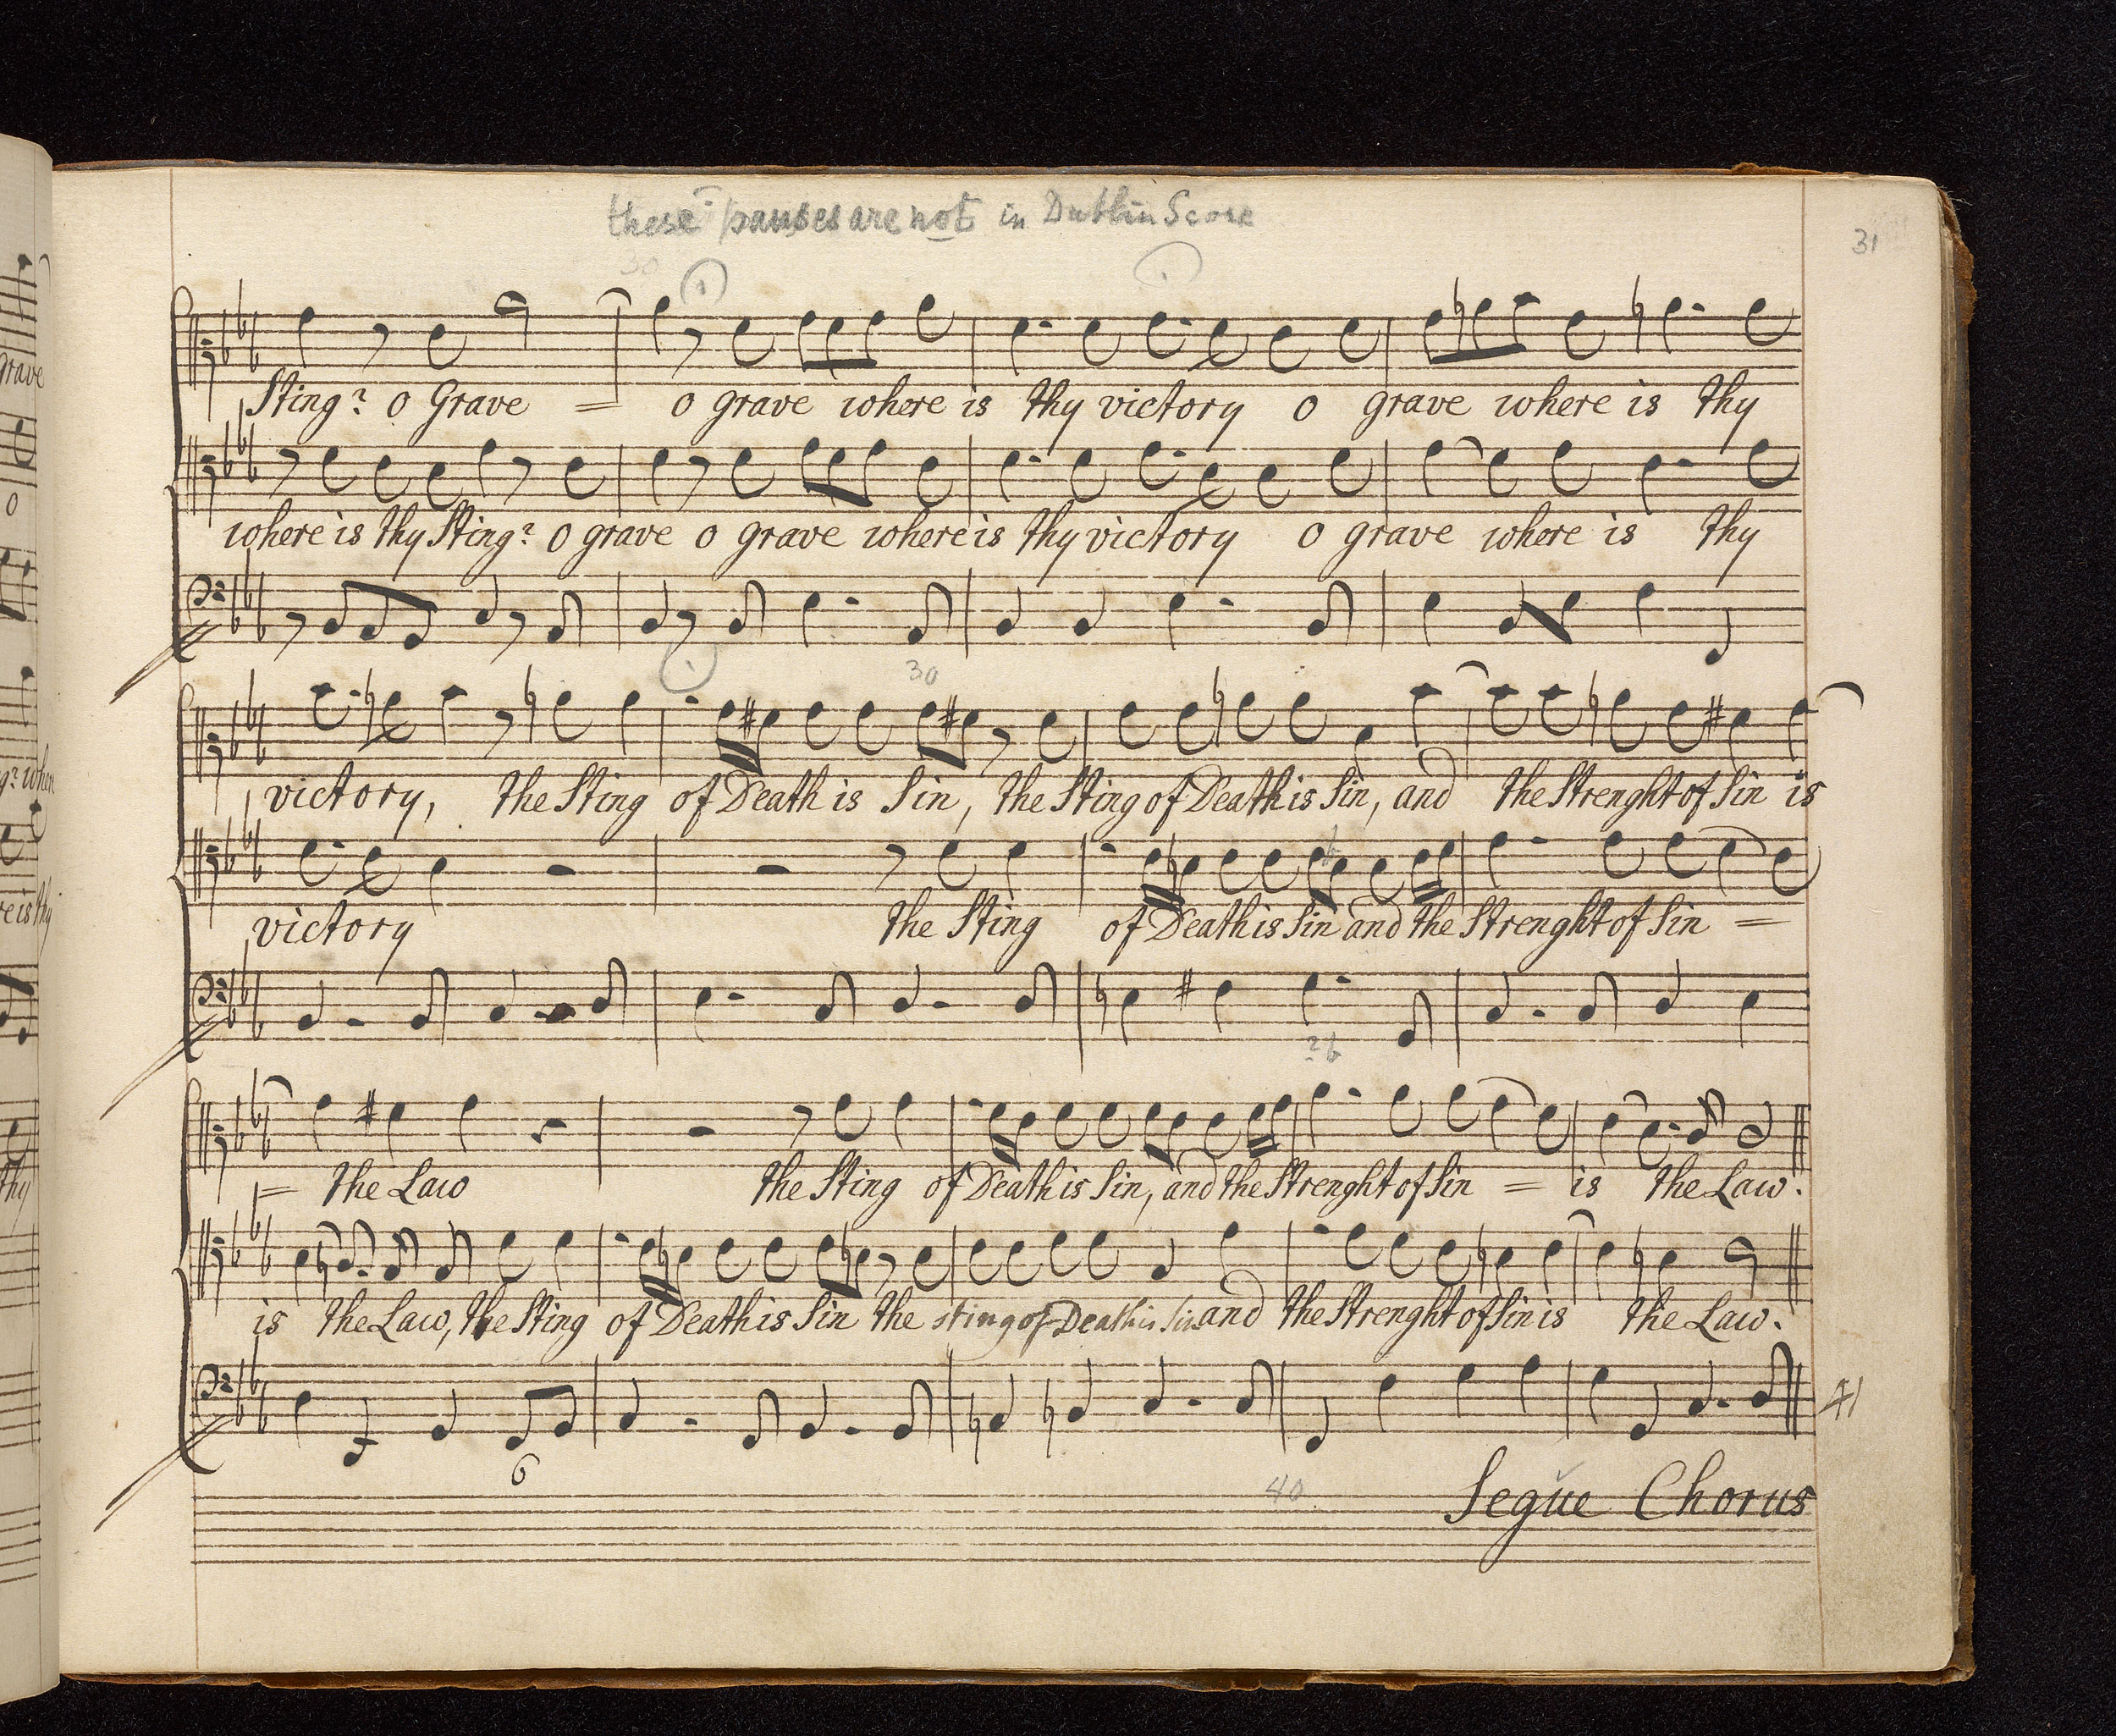 these pauses are not in Dublin Score
31
30
Sting? o Grave = o grave where is thy victory o grave where is thy
where is thy Sting? o grave o grave where is thy victory o grave where is thy
30
victory, the Sting of Death is Sin, the Sting of Death is Sin, and the Strenght of Sin is
victory the Sting of Death is Sin and the Strenght of Sin =
? b
= the Law the Sting of Death is Sin, and the Strenght of Sin = is the Law.
is the Law, the Sting of Death is Sin the sting of Death is Sin and the Strenght of Sin is the Law.
41
6
40
Segue Chorus